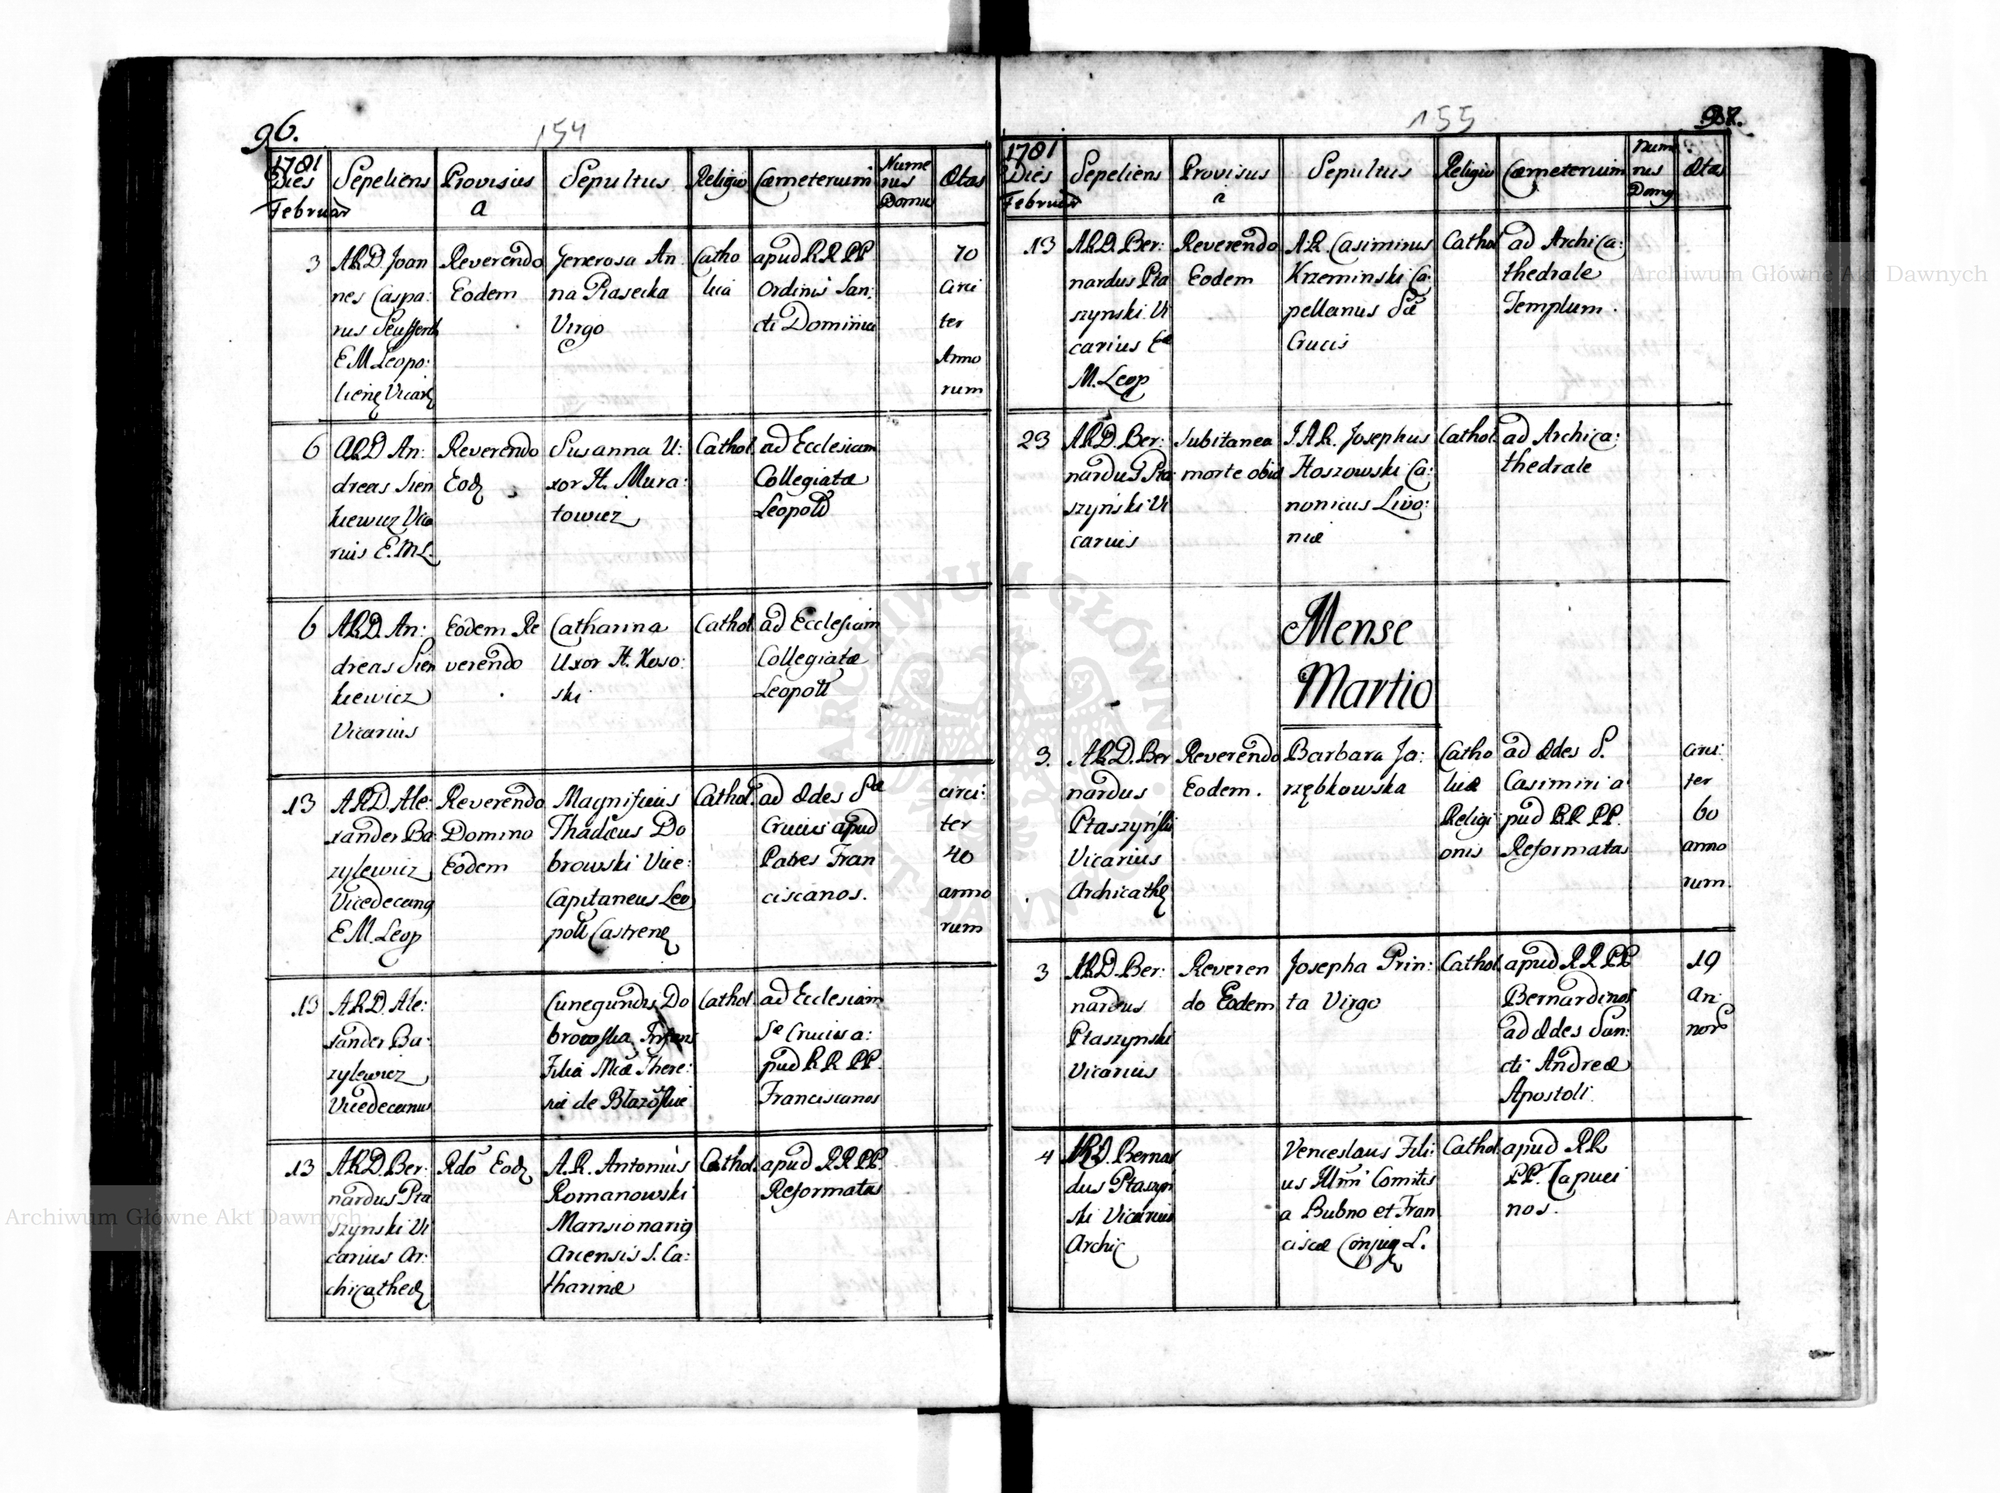 96.
154
1781
Dies
Februar
Sepeliens
Provisus
a
Sepultus
Religio
Cæmeterium
Nume
rus
Domus
Ætas
3
ARD Joan
nes Caspa:
rus
E M Leopo:
Reverendo
Eodem
Generosa An
na Piasecka
Virgo
Catho
lica
apud RR PP
Ordinis San:
cti Dominici
70
circi
ter
Anno
rum
6
ARD An:
dreas Sien
kiewicz Vica
rius E.M L
Reverendo
Susanna U:
xor H. Mura:
towicz
Cathol
ad Ecclesiam
Collegiatæ
Leopold
6
ARD. An:
dreas Sien
kiewicz
Vicarius
Eodem Re
verendo
Catharina
Uxor H. Koso:
ski
Cathol
ad Ecclesiam
Collegiatæ
Leopoli
13
ARD Ale:
xander Ba:
zylewicz
Vicedecanus
E M. Leop
Reverendo
Domino
Eodem
Magnificus
Thadæus Do
browski Vice:
Capitaneus Leo
poli Castren
Cathol.
ad Ædes Sæ
Crucis apud
Patres Fran
ciscanos.
circi:
ter
40
anno
rum
13
ARD. Ale:
xander Ba:
zylewicz
Vicedecanus
Cunegundis Do
browska Infans
Filia Mcæ There:
siæ de
Cathol
ad Ecclesiam
Sæ Crucis a:
pud RR PP.
Franciscanos
13
ARD. Ber:
nardus Pta
szynski Vi
carius Ar:
Rdo Eod
A.R. Antonius
Romanowski
Mansionarius
Arcensis S. Ca:
tharinæ
Cathol.
apud RR PP.
Reformatas
155
1781
Dies
Februar
Sepeliens
Provisus
a
Sepultus
Religio
Cæmeterium
Nume
rus
Domus
Ætas
13
ARD. Ber:
nardus Pta
szynski Vi
carius Eæ
M. Leop
Reverendo
Eodem
A.R. Casimirus
Krzeminski Ca:
pellanus Sæ
Crucis
Cathol
ad Archi Ca:
thedrale
Templum.
23
ARD. Ber:
nardus Pta
szyński Vi
carius
Subitanea
morte obiit
J.A.R. Josephus
Hoszowski Ca:
nonicus Livo:
niæ
Cathol
ad Archi Ca:
thedrale
Mense
Martio
3.
ARD. Ber
nardus
Ptaszyński
Vicarius
Archicath
Reverendo
Eodem.
Barbara Ja:
rzębkowska
Catho
licæ
Religi
onis
ad Ædes S.
Casimiri a
pud RR PP.
Reformatas
circi:
ter
60
anno
rum.
3
ARD. Ber:
nardus
Ptaszynski
Vicarius
Reveren
do Eodem
Josepha Prin:
ta Virgo
Cathol.
apud RR PP
Bernardinos
ad Ædes San:
cti Andreæ
Apostoli
19
an:
nor
4
ARD. Bernar
dus Ptaszyn
ski Vicarius
Archic
Venceslaus Fili:
us Illmi Comitis
a Bubno et Fran
ciscæ Conjug L.
Cathol.
apud RR
PP. Capuci
nos.
Archiwum Główne Akt Dawnych
Archiwum Główne Akt Dawnych
ARCHIWUM GŁÓWNE AKT DAWNYCH